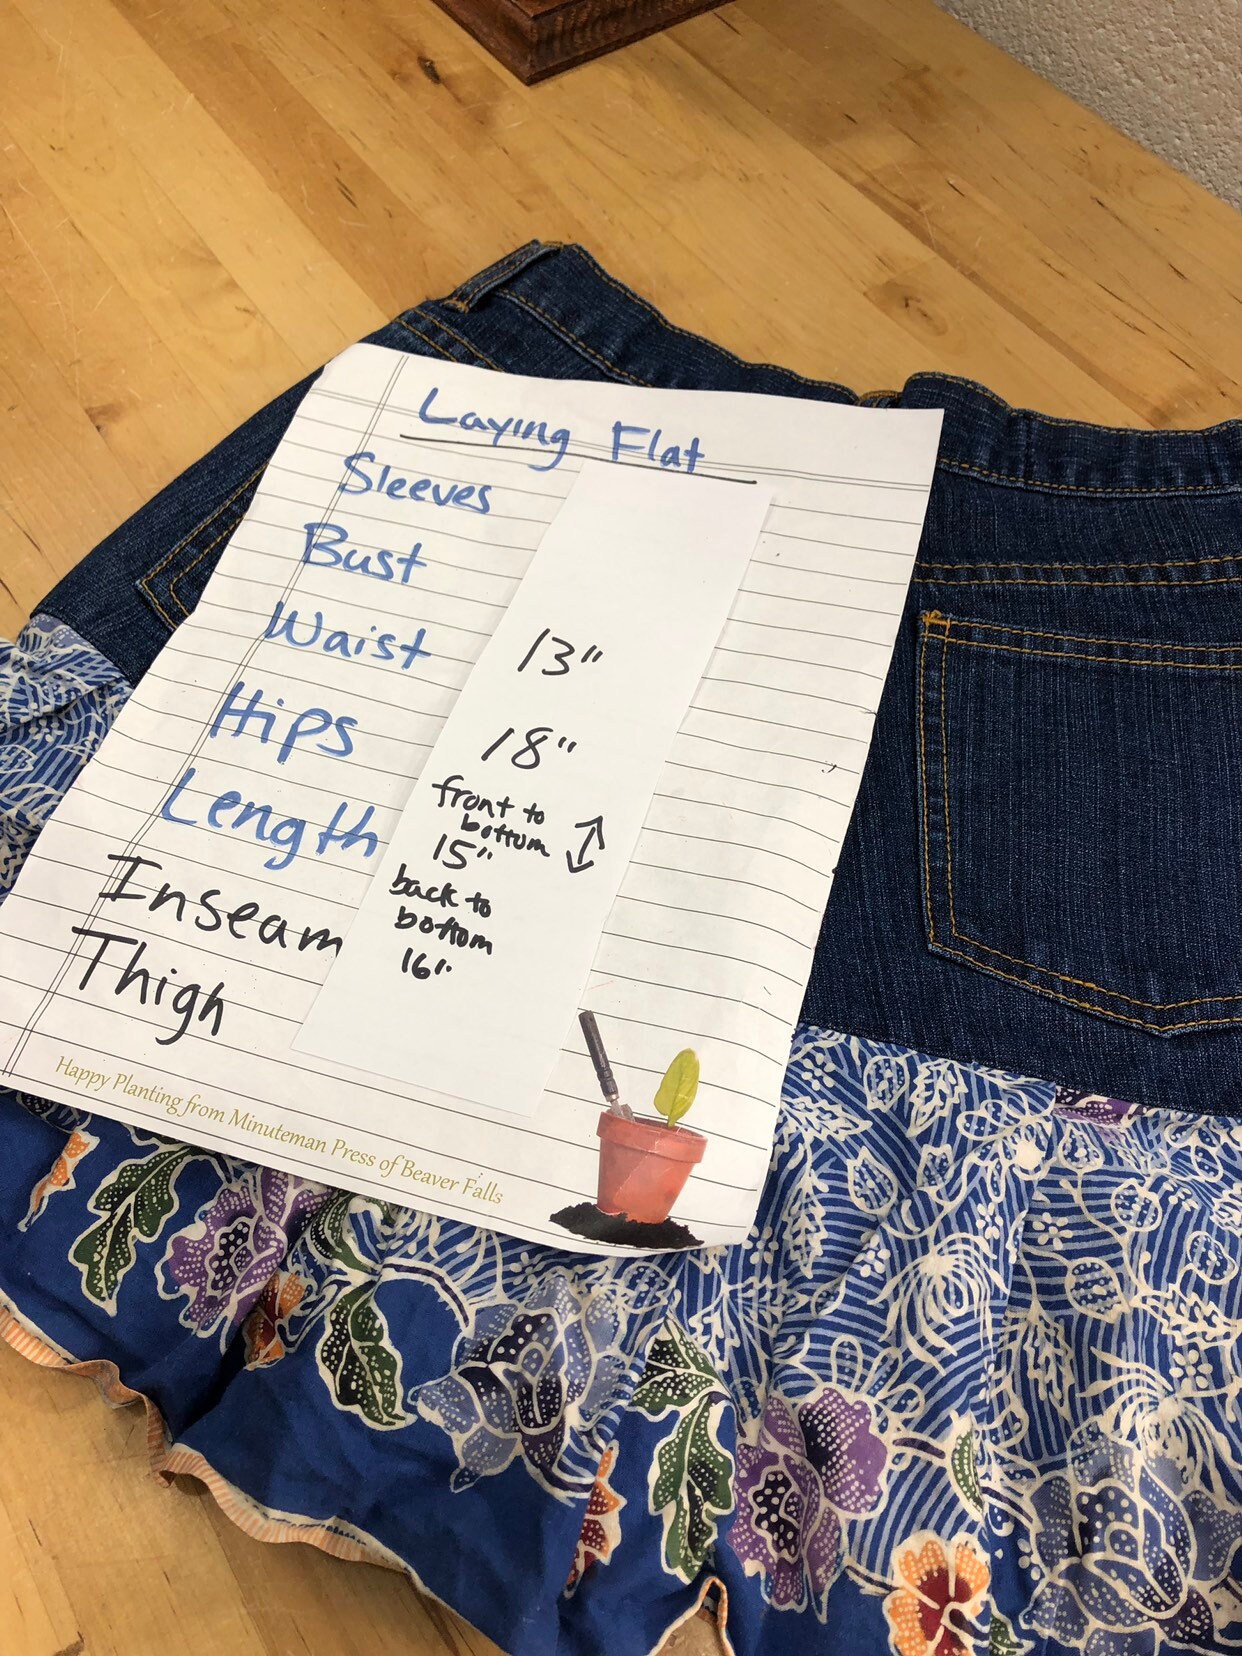 Laying Flat
Sleeves
Bust
Waist 13"
Hips 18"
Length front to
bottom
15"
Inseam back to
bottom
Thigh 16"
Happy Planting from Minuteman Press of Beaver Falls